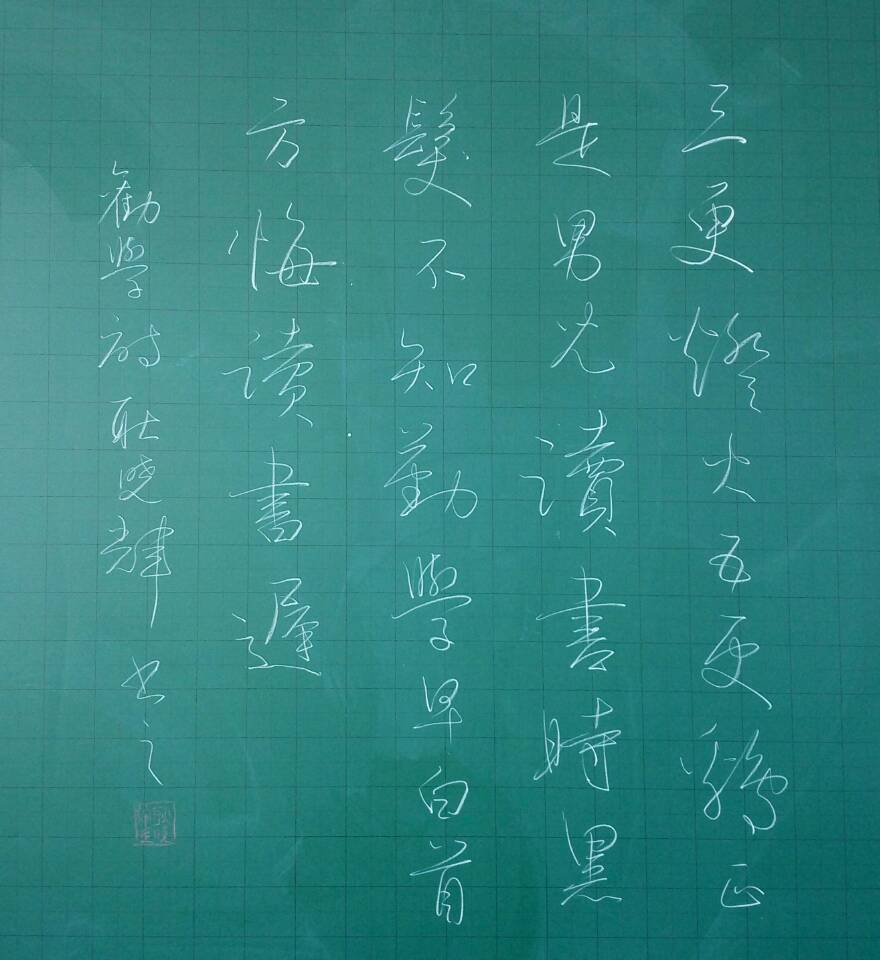 三更燈火五更鷄正
是男兒讀書時黑
髮不知勤學早白首
方悔讀書遲
勸學詩 耿曉輝 书之